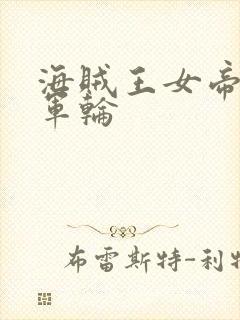 海賊王女帝
軍輪
布雷斯特-利特